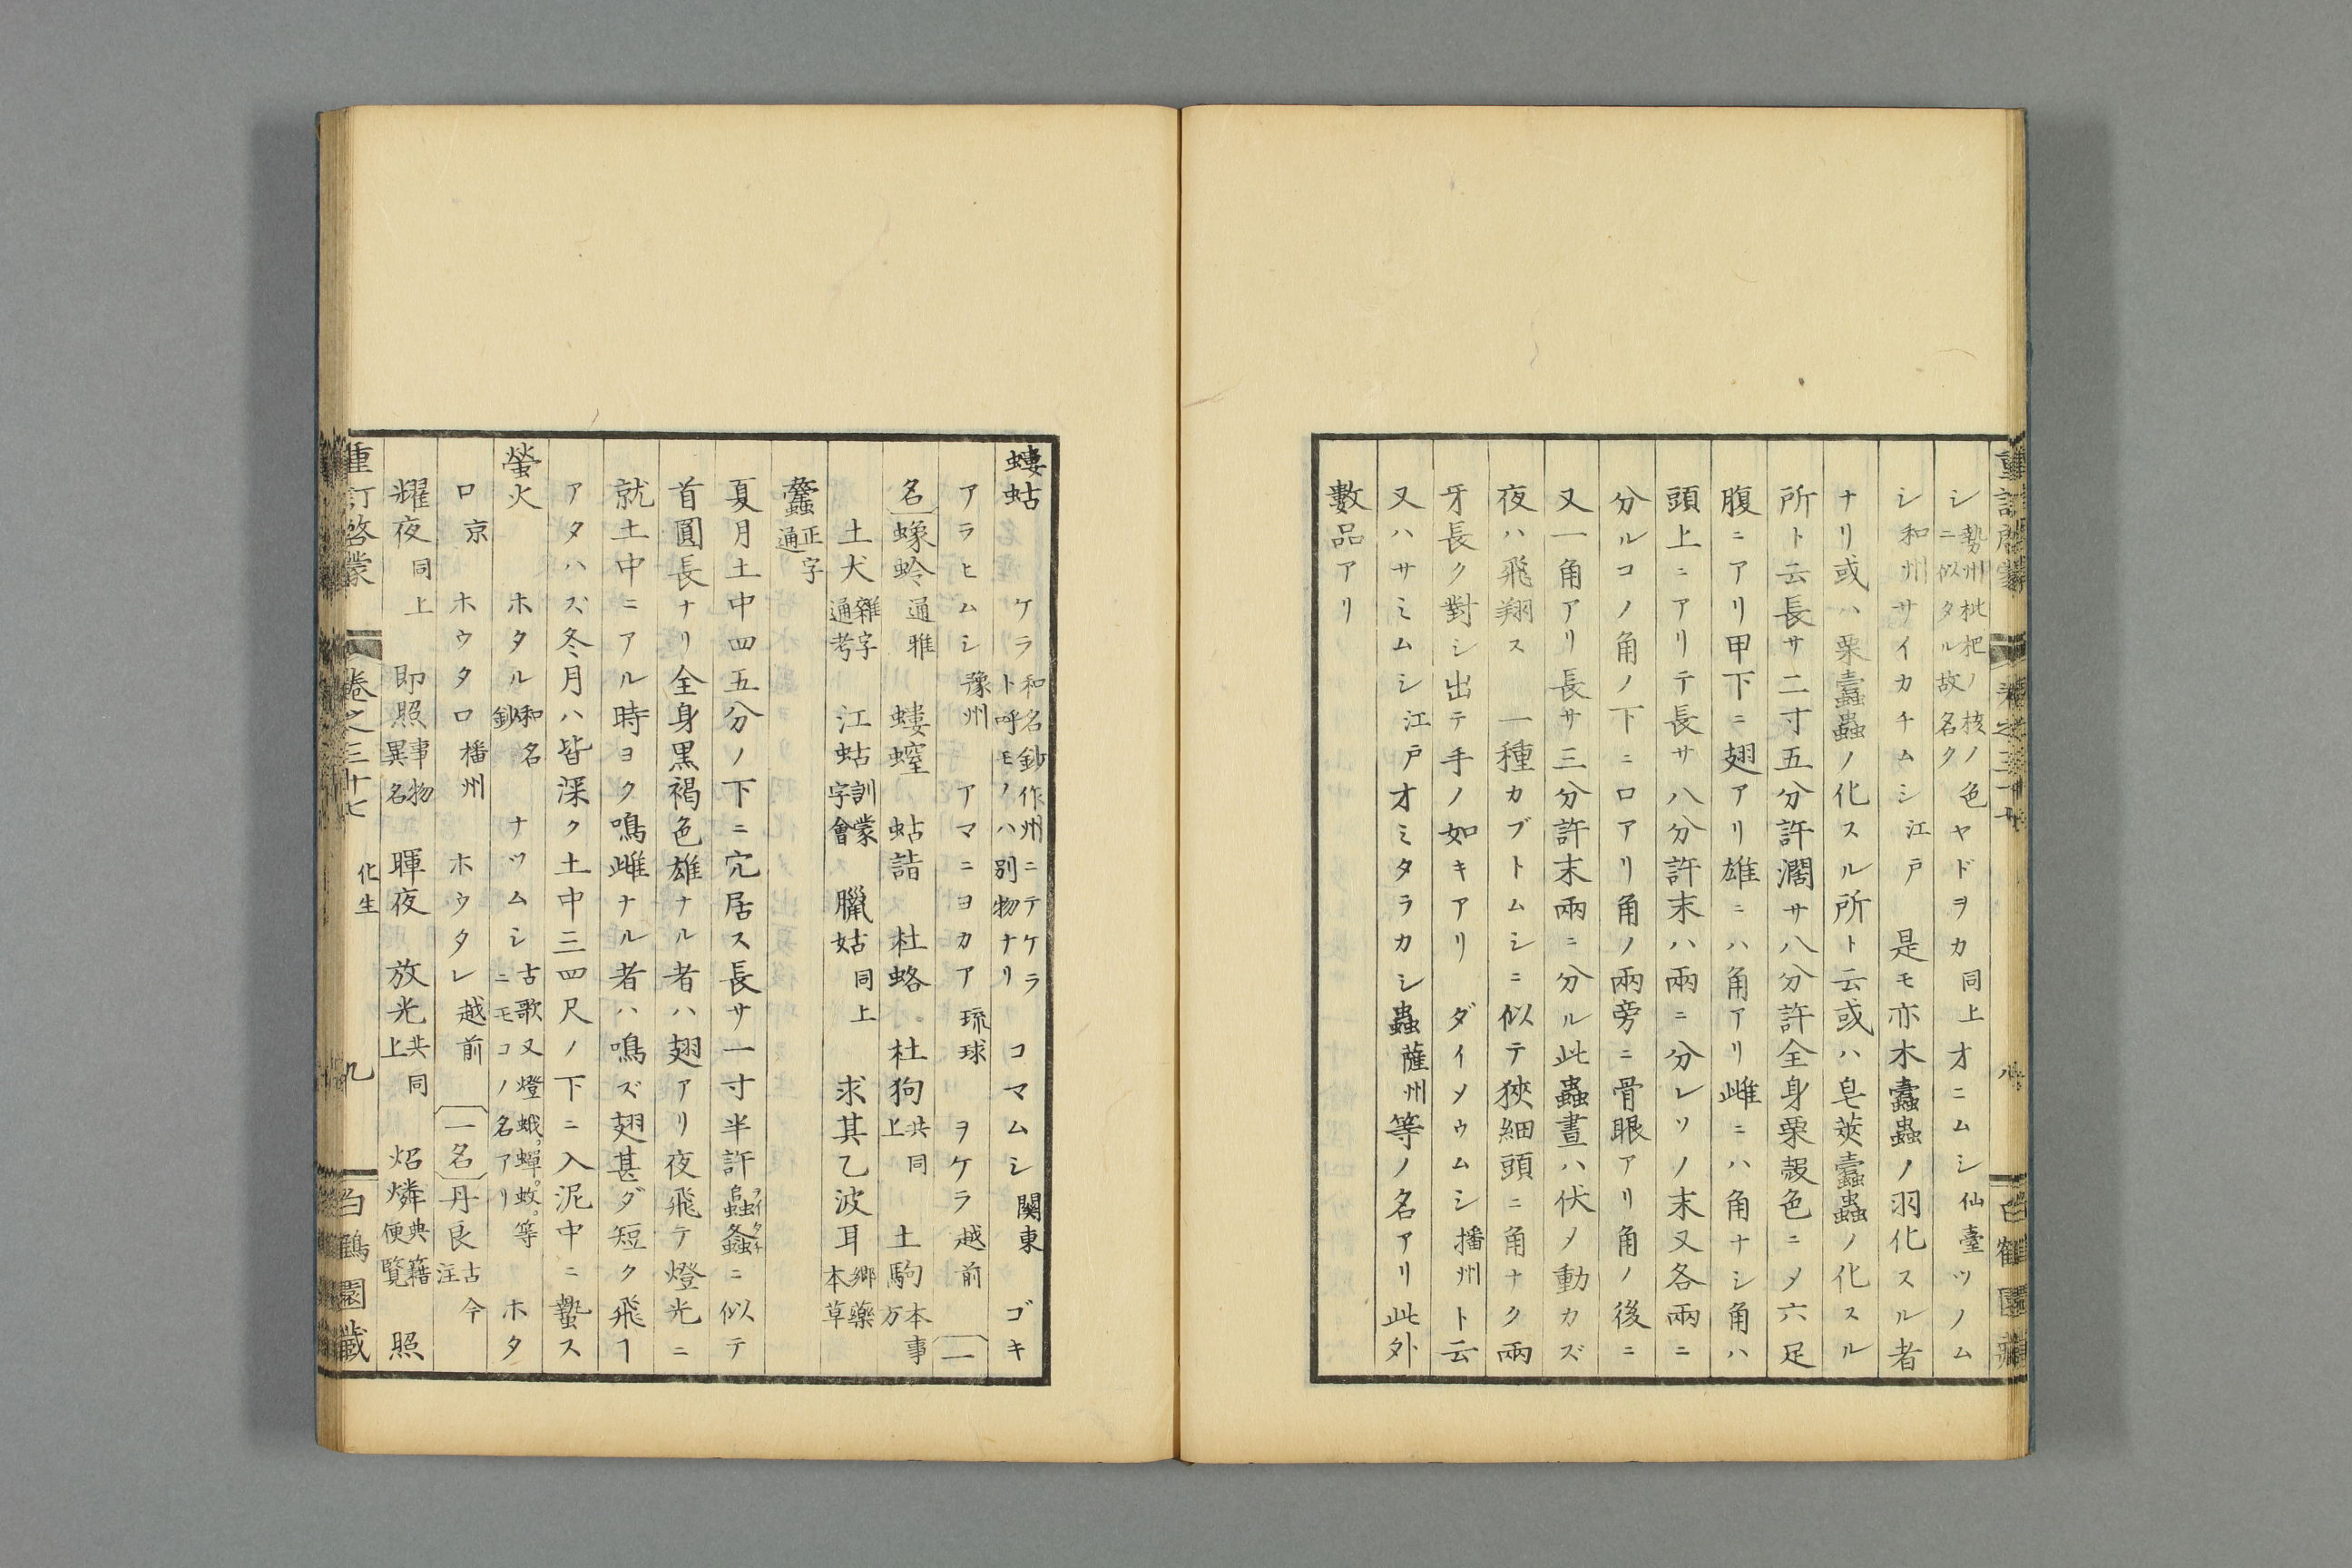 シ 勢州枇杷ノ核ノ色ニ似タル故名ク ヤドヲカ 同上 オニムシ 仙臺 ツノム
シ 和州 サイカチムシ 江戸 是モ亦木蠹蟲ノ羽化スル者
ナリ或ハ栗蠹蟲ノ化スル所ト云或ハ皂莢蠹蟲ノ化スル
所ト云長サ二寸五分許濶サ八分許全身栗殻色ニメ六足
腹ニアリ甲下ニ翅アリ雄ニハ角アリ雌ニハ角ナシ角ハ
頭上ニアリテ長サ八分許末ハ兩ニ分レソノ末又各兩ニ
分ルコノ角ノ下ニ口アリ角ノ兩旁ニ骨眼アリ角ノ後ニ
又一角アリ長サ三分許末兩ニ分ル此蟲晝ハ伏メ動カズ
夜ハ飛翔ス 一種カブトムシニ似テ狹細頭ニ角ナク兩
牙長ク對シ出テ手ノ如キアリ ダイメウムシ 播州 ト云
又ハサミムシ 江戸 オミタラカシ蟲 薩州 等ノ名アリ此外
數品アリ
螻蛄 ケラ 和名鈔作州ニテケラト呼モノハ別物ナリ コマムシ 關東 ゴキ
アラヒムシ 豫州 アマニヨカア 琉球 ヲケラ 越前 〔一
名〕蟓蛉 通雅 螻螲 蛄䗣 杜蛒 杜狗 共同上 土駒 本事方
土犬 雜字通考 江蛄 訓蒙字會 臘姑 同上 求其乙波耳 郷藥本草
正字通
夏月土中四五分ノ下ニ穴居ス長サ一寸半許ニ似テ
首圓長ナリ全身黒褐色雄ナル者ハ翅アリ夜飛テ燈光ニ
就土中ニアル時ヨク鳴雌ナル者ハ鳴ズ翅甚ダ短ク飛ヿ
アタハズ冬月ハ皆深ク土中三四尺ノ下ニ入泥中ニ蟄ス
螢火 ホタル 和名鈔 ナツムシ 古歌又燈蛾。蟬。蚊。等ニモコノ名アリ ホタ
ロ 京 ホウタロ 播州 ホウタレ 越前 〔一名〕丹良 古今注
耀夜 同上 即照 事物異名 暉夜 放光 共同上 炤燐 典籍便覽 照
重訂啓蒙 卷之三十七 化生 九 白鶴園藏